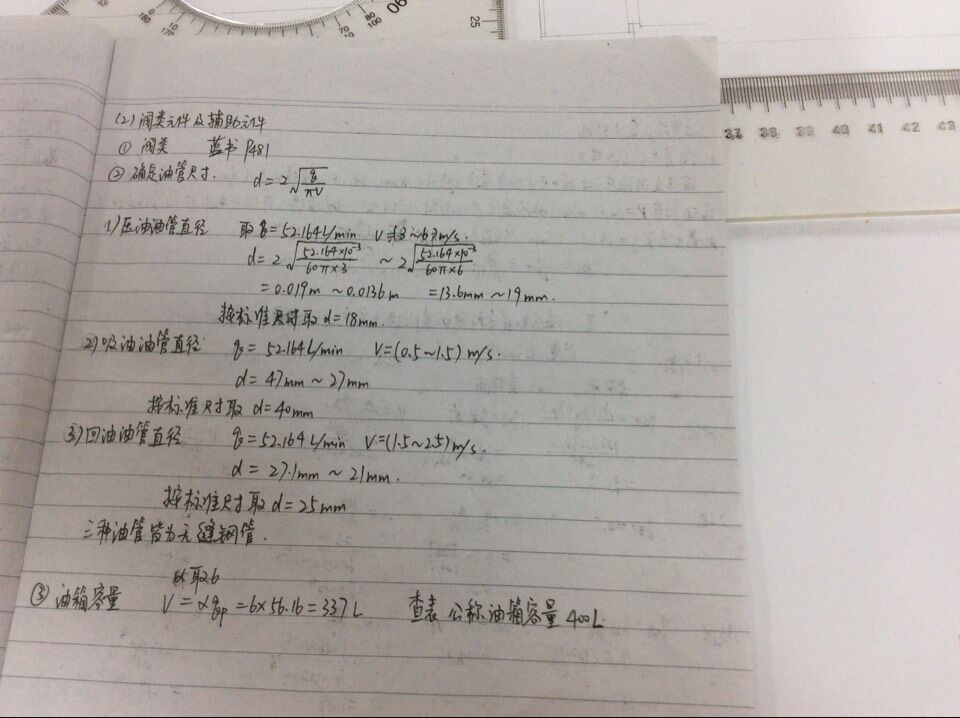 (2) 阀类元件及辅助元件
① 阀类 蓝书 P481
② 确定油管尺寸. d=2√(q/πV)
1) 压油油管直径 取 q=52.164L/min V=3~6 m/s.
d=2√(52.164×10⁻³/60π×3) ~2√(52.164×10⁻³/60π×6)
=0.019m~0.0136m =13.6mm~19mm.
按标准尺寸取 d=18mm.
2) 吸油油管直径 q=52.164L/min V=(0.5~1.5)m/s.
d=47mm~27mm
按标准尺寸取 d=40mm
3) 回油油管直径 q=52.164L/min V=(1.5~2.5)m/s.
d=27.1mm~21mm.
按标准尺寸取 d=25mm
三种油管皆为无缝钢管.
α取6
③ 油箱容量 V=αqp=6×56.16=337L 查表 公称油箱容量400L.
25
90
80
100
70
160
10
170
37 38 39 40 41 42 43